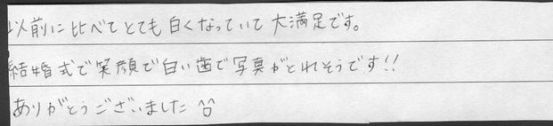 以前に比べてとても白くなっていて大満足です。
結婚式で笑顔で白い歯で写真がとれそうです!!
ありがとうございました ^□^